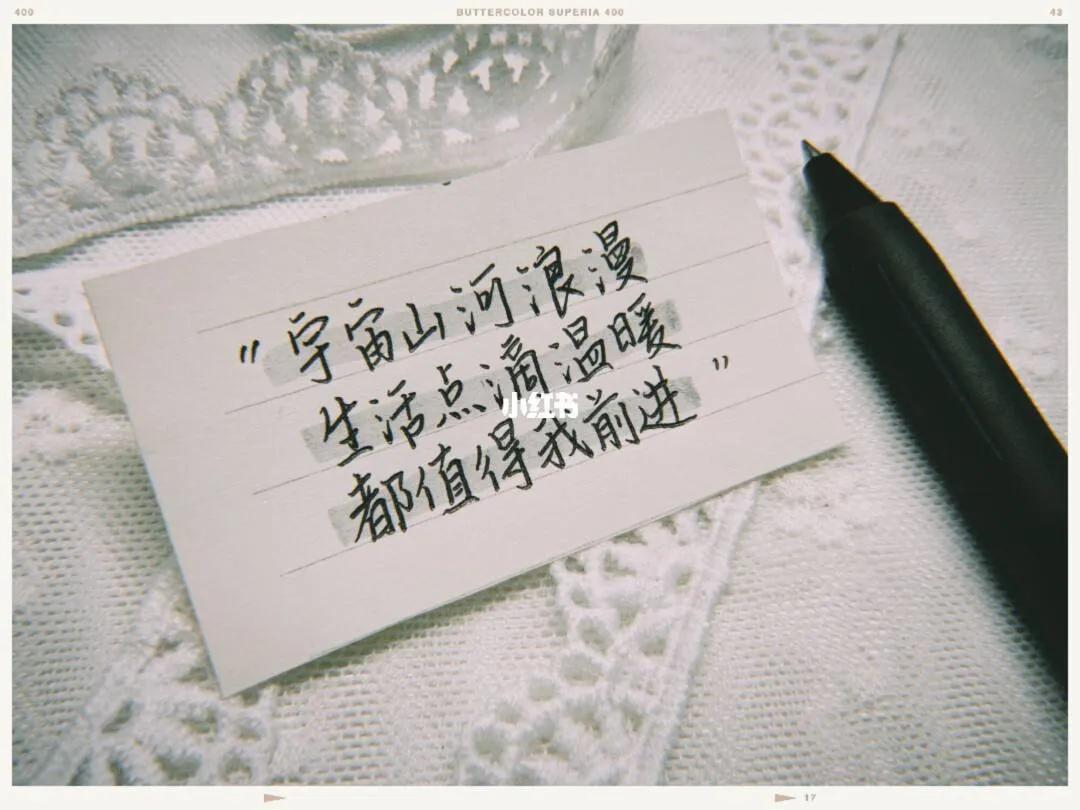 400 BUTTERCOLOR SUPERIA 400 43
"宇宙山河浪漫
生活点滴温暖
都值得我前进"
小红书
17